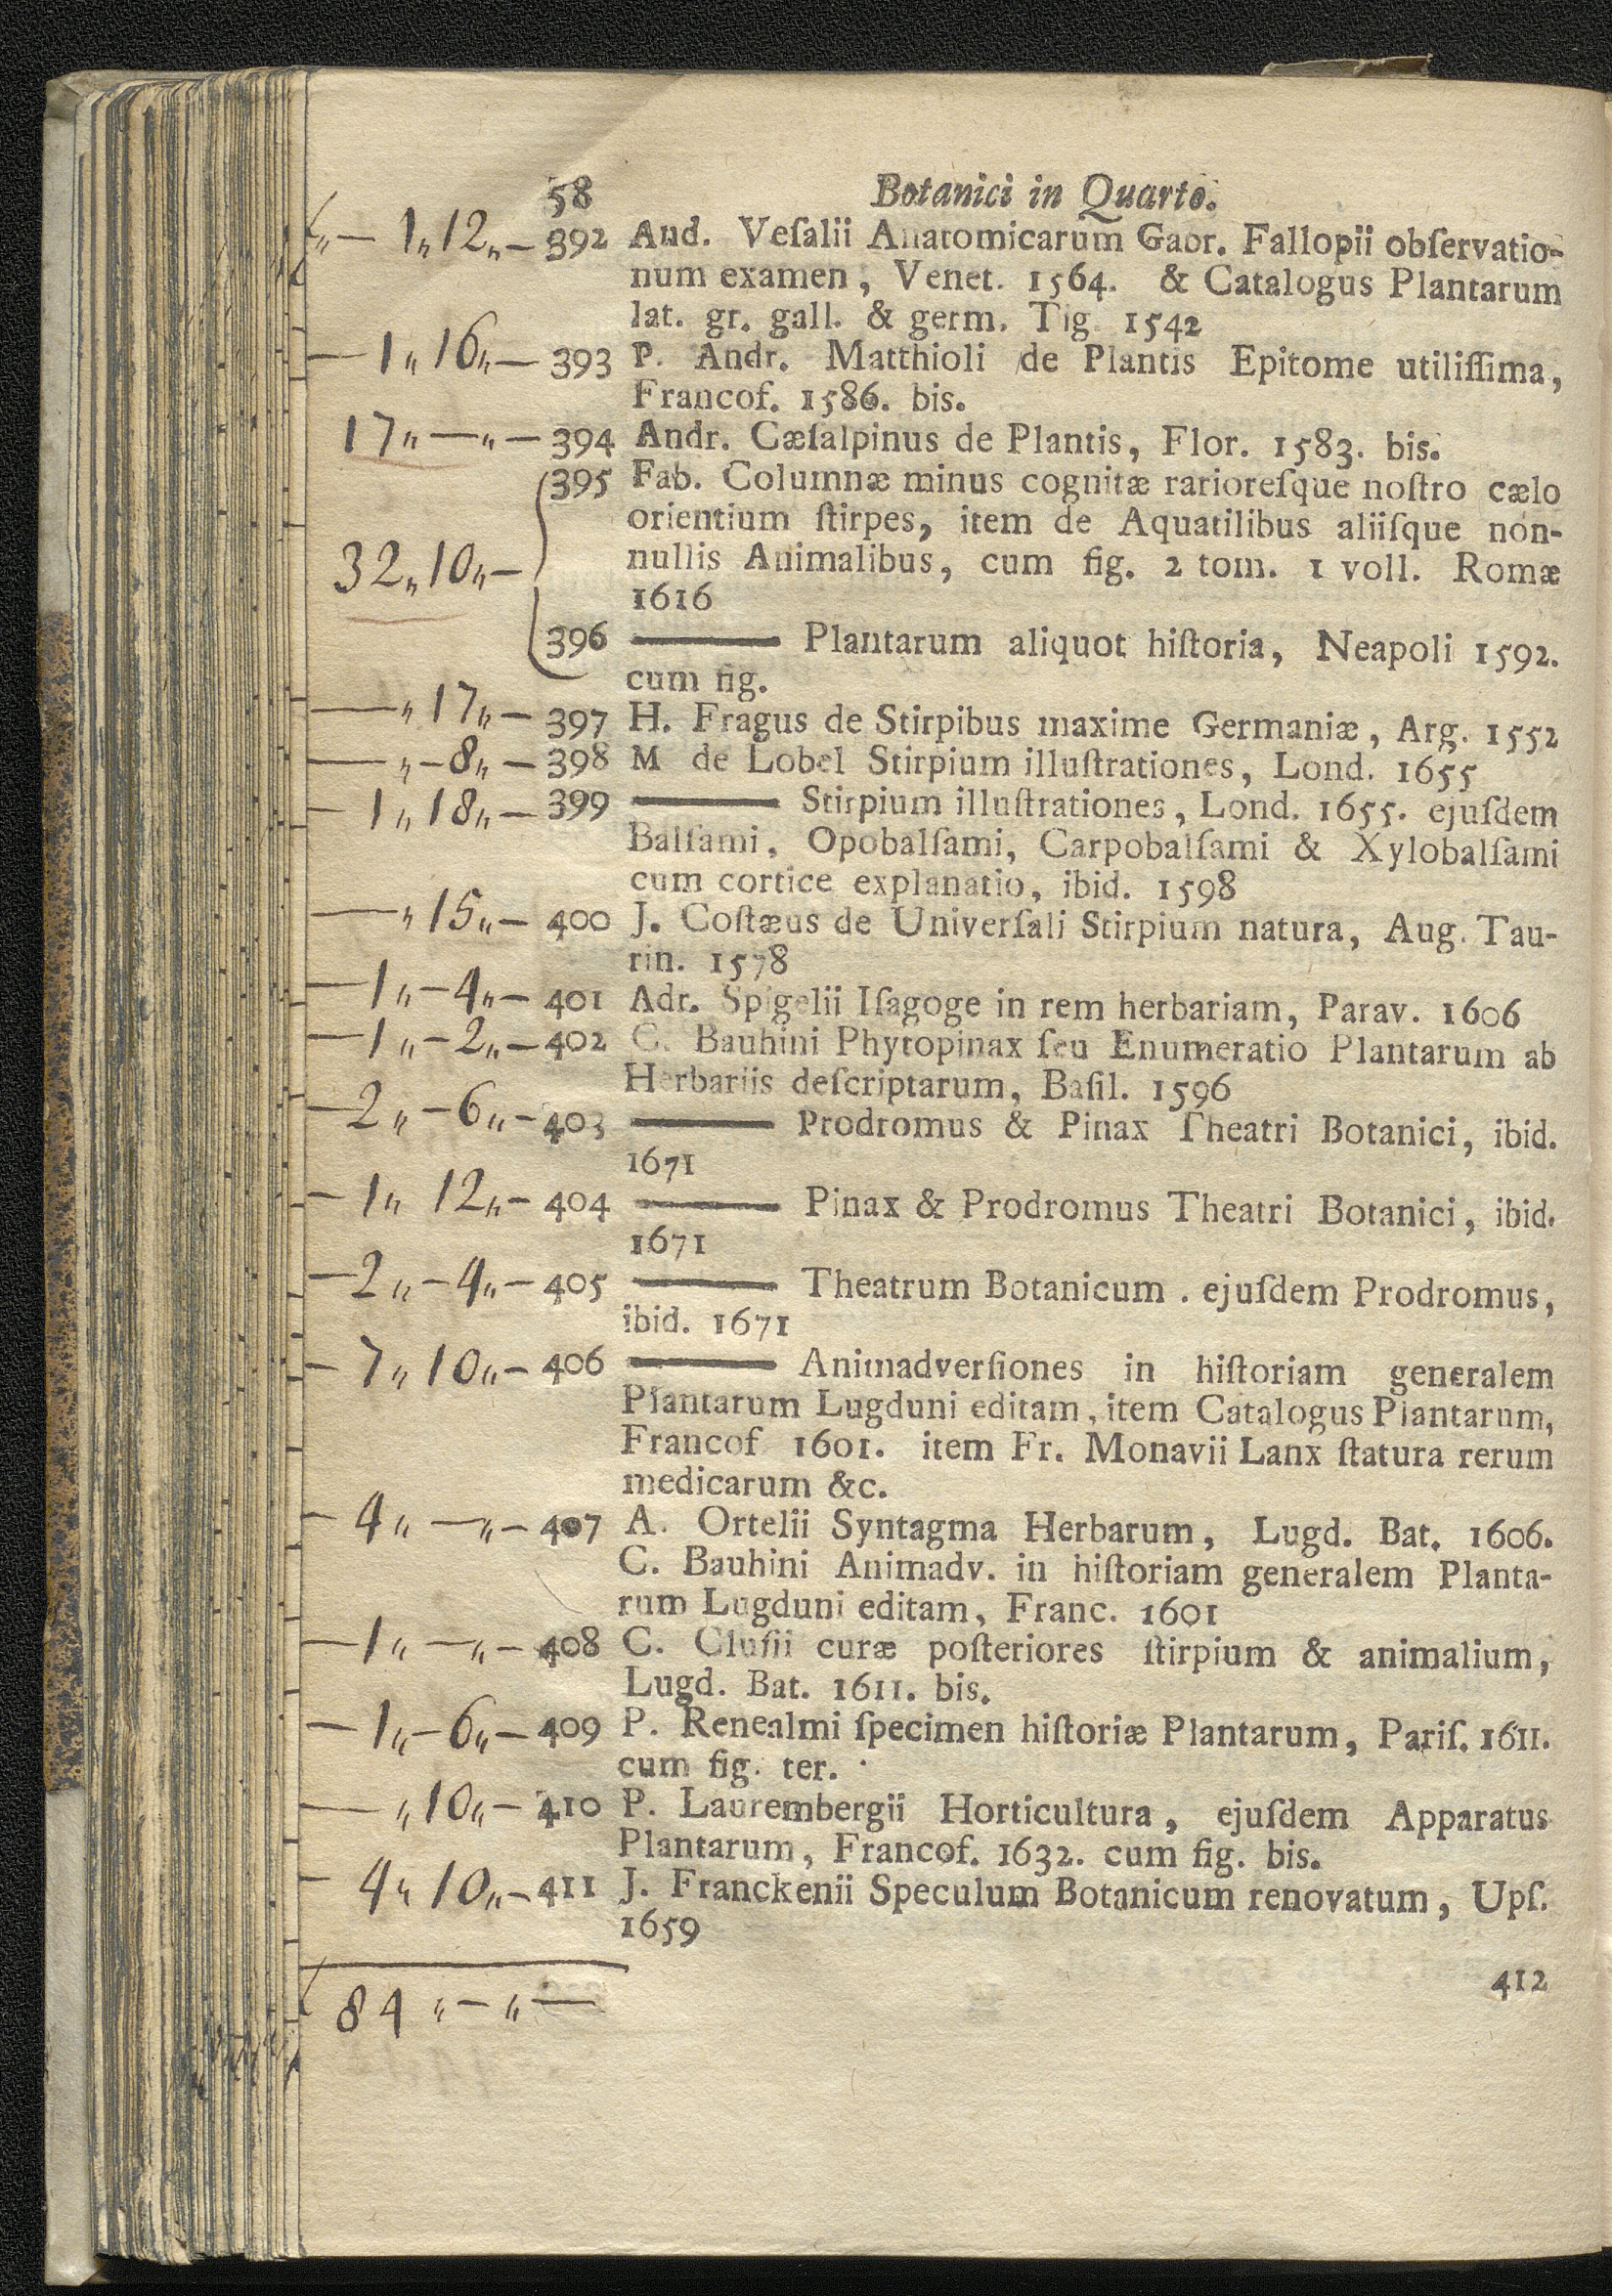 58 Botanici in Quarto.
f„— 1„ 12„ — 392 And. Veſalii Anatomicarum Gabr. Fallopii obſervatio-
num examen, Venet. 1564. & Catalogus Plantarum
lat. gr. gall. & germ. Tig. 1542
— 1„ 16„ — 393 P. Andr. Matthioli de Plantis Epitome utiliſſima,
Francof. 1586. bis.
17„ — „ — 394 Andr. Cæſalpinus de Plantis, Flor. 1583. bis.
395 Fab. Columnæ minus cognitæ rarioreſque noſtro cælo
orientium ſtirpes, item de Aquatilibus aliiſque non-
32„ 10„ — nullis Animalibus, cum fig. 2 tom. 1 voll. Romæ
1616
396 ——— Plantarum aliquot hiſtoria, Neapoli 1592.
cum fig.
— „ 17„ — 397 H. Fragus de Stirpibus maxime Germaniæ, Arg. 1552
— „ – 8„ — 398 M de Lobel Stirpium illuſtrationes, Lond. 1655
— 1„ 18„ — 399 ——— Stirpium illuſtrationes, Lond. 1655. ejuſdem
Balſami, Opobalſami, Carpobalſami & Xylobalſami
cum cortice explanatio, ibid. 1598
— „ 15„ — 400 J. Coſtæus de Univerſali Stirpium natura, Aug. Tau-
rin. 1578
— 1„ – 4„ — 401 Adr. Spigelii Iſagoge in rem herbariam, Parav. 1606
— 1„ – 2„ — 402 C. Bauhini Phytopinax ſeu Enumeratio Plantarum ab
Herbariis deſcriptarum, Baſil. 1596
— 2„ – 6„ — 403 ——— Prodromus & Pinax Theatri Botanici, ibid.
1671
— 1„ 12„ — 404 ——— Pinax & Prodromus Theatri Botanici, ibid.
1671
— 2„ – 4„ — 405 ——— Theatrum Botanicum . ejuſdem Prodromus,
ibid. 1671
— 7„ 10„ — 406 ——— Animadverſiones in hiſtoriam generalem
Plantarum Lugduni editam, item Catalogus Plantarum,
Francof 1601. item Fr. Monavii Lanx ſtatura rerum
medicarum &c.
— 4„ — „ — 407 A. Ortelii Syntagma Herbarum, Lugd. Bat. 1606.
C. Bauhini Animadv. in hiſtoriam generalem Planta-
rum Lugduni editam, Franc. 1601
— 1„ — „ — 408 C. Cluſii curæ poſteriores ſtirpium & animalium,
Lugd. Bat. 1611. bis.
— 1„ – 6„ — 409 P. Renealmi ſpecimen hiſtoriæ Plantarum, Pariſ. 1611.
cum fig. ter.
— „ 10„ — 410 P. Laurembergii Horticultura, ejuſdem Apparatus
Plantarum, Francof. 1632. cum fig. bis.
— 4„ 10„ — 411 J. Franckenii Speculum Botanicum renovatum, Upſ.
1659
412
f 84 „ — „ —